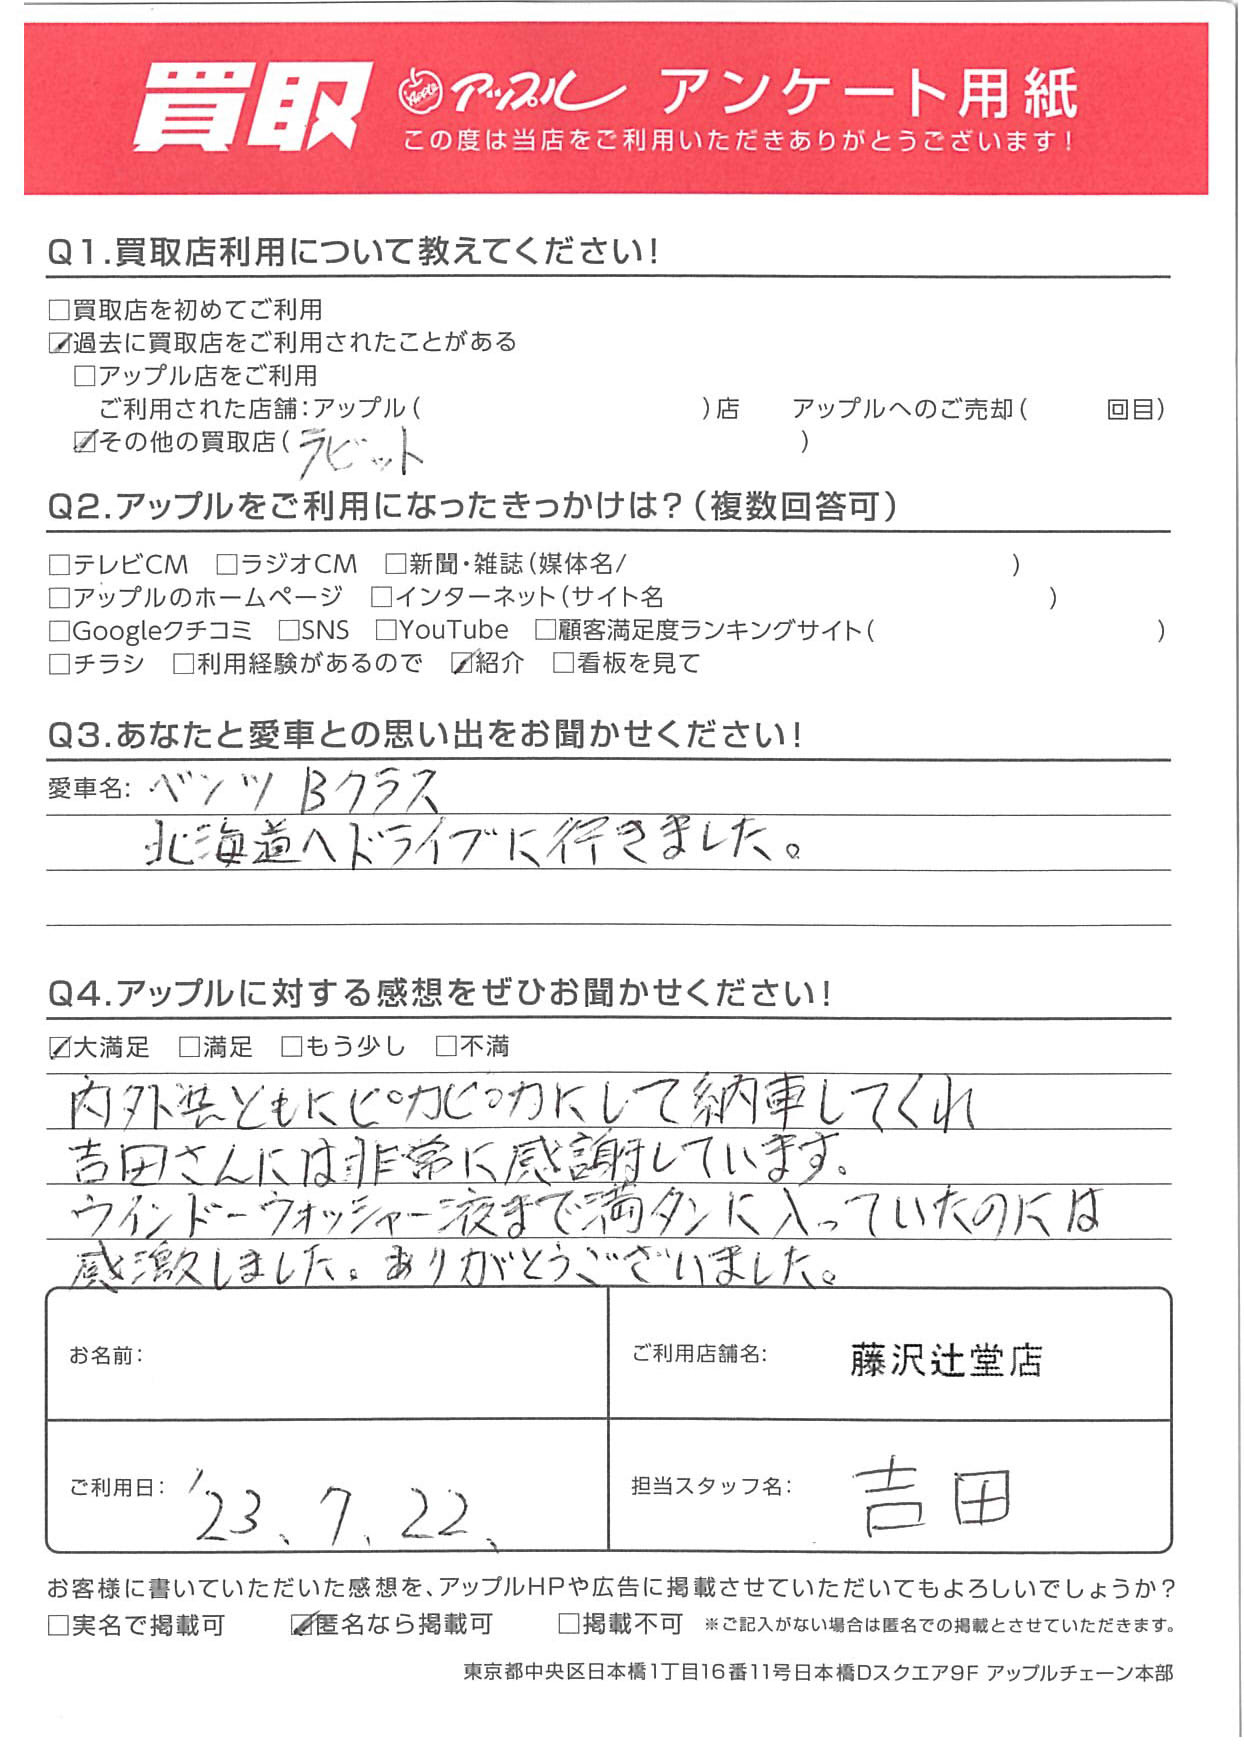 買取 Apple アップル アンケート用紙
この度は当店をご利用いただきありがとうございます!
Q1.買取店利用について教えてください!
□買取店を初めてご利用
☑過去に買取店をご利用されたことがある
□アップル店をご利用
ご利用された店舗:アップル( )店 アップルへのご売却( 回目)
☑その他の買取店(ラビット )
Q2.アップルをご利用になったきっかけは?(複数回答可)
□テレビCM □ラジオCM □新聞・雑誌(媒体名/ )
□アップルのホームページ □インターネット(サイト名 )
□Googleクチコミ □SNS □YouTube □顧客満足度ランキングサイト( )
□チラシ □利用経験があるので ☑紹介 □看板を見て
Q3.あなたと愛車との思い出をお聞かせください!
愛車名: ベンツ Bクラス
北海道へドライブに行きました。
Q4.アップルに対する感想をぜひお聞かせください!
☑大満足 □満足 □もう少し □不満
内外装ともにピカピカにして納車してくれ
吉田さんには非常に感謝しています。
ウインドーウォッシャー液まで満タンに入っていたのには
感激しました。ありがとうございました。
お名前: ご利用店舗名: 藤沢辻堂店
ご利用日: '23、7、22、 担当スタッフ名: 吉田
お客様に書いていただいた感想を、アップルHPや広告に掲載させていただいてもよろしいでしょうか?
□実名で掲載可 ☑匿名なら掲載可 □掲載不可 ※ご記入がない場合は匿名での掲載とさせていただきます。
東京都中央区日本橋1丁目16番11号日本橋Dスクエア9F アップルチェーン本部